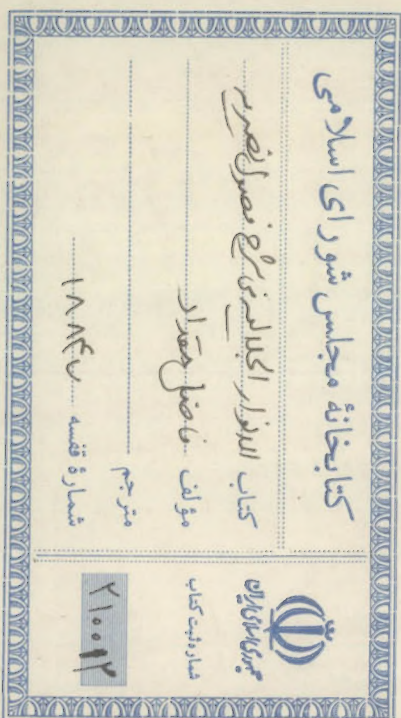 کتابخانهٔ مجلس شورای اسلامی
کتاب الانوار الجلالیه فی شرح فصول نصیریه
مؤلف فاضل مقداد
مترجم
شمارهٔ قفسه ۱۸۸۴۷
جمهوری اسلامی ایران
شماره ثبت کتاب
۲۱۰۰۹۲